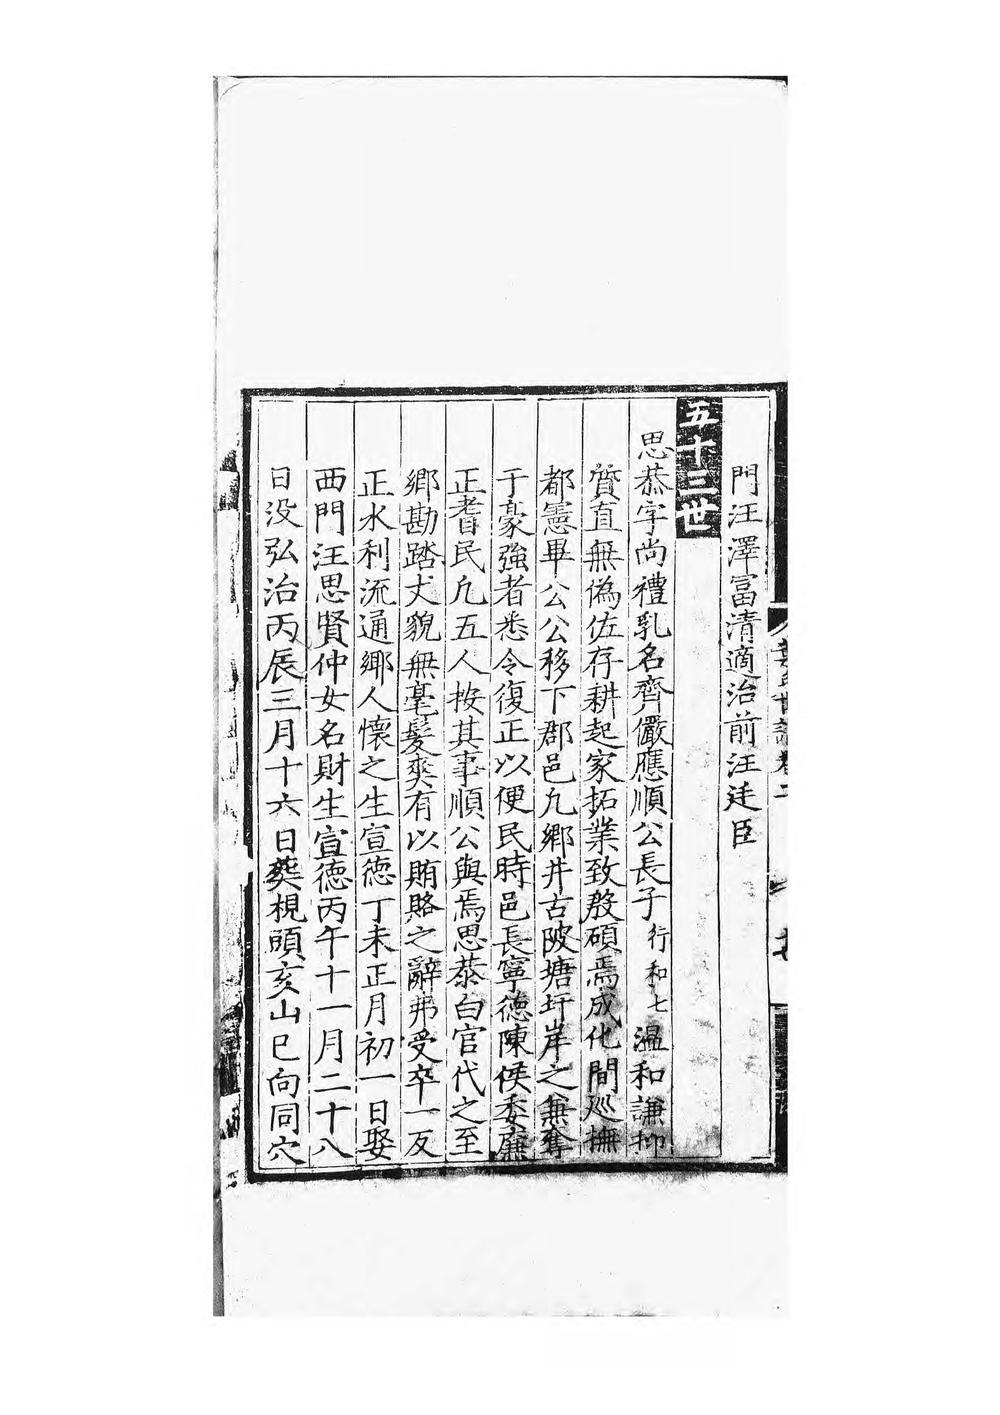 門汪澤富清適治前汪廷臣
五十三世
思恭字尚禮乳名齊儼應順公長子行和七溫和謙抑
質直無偽佐存耕起家拓業致殷碩焉成化間廵撫
都憲畢公公移下郡邑凣鄉井古陂塘圩岸之兼奪
于豪強者悉令復正以便民時邑長寧德陳侯委廉
正耆民凣五人按其事順公與焉思恭白官代之至
鄉勘踏丈貌無毫髮爽有以賄賂之辭弗受卒一反
正水利流通鄉人懷之生宣德丁未正月初一日娶
西門汪思賢仲女名財生宣德丙午十一月二十八
日没弘治丙辰三月十六日葬梘頭亥山巳向同穴